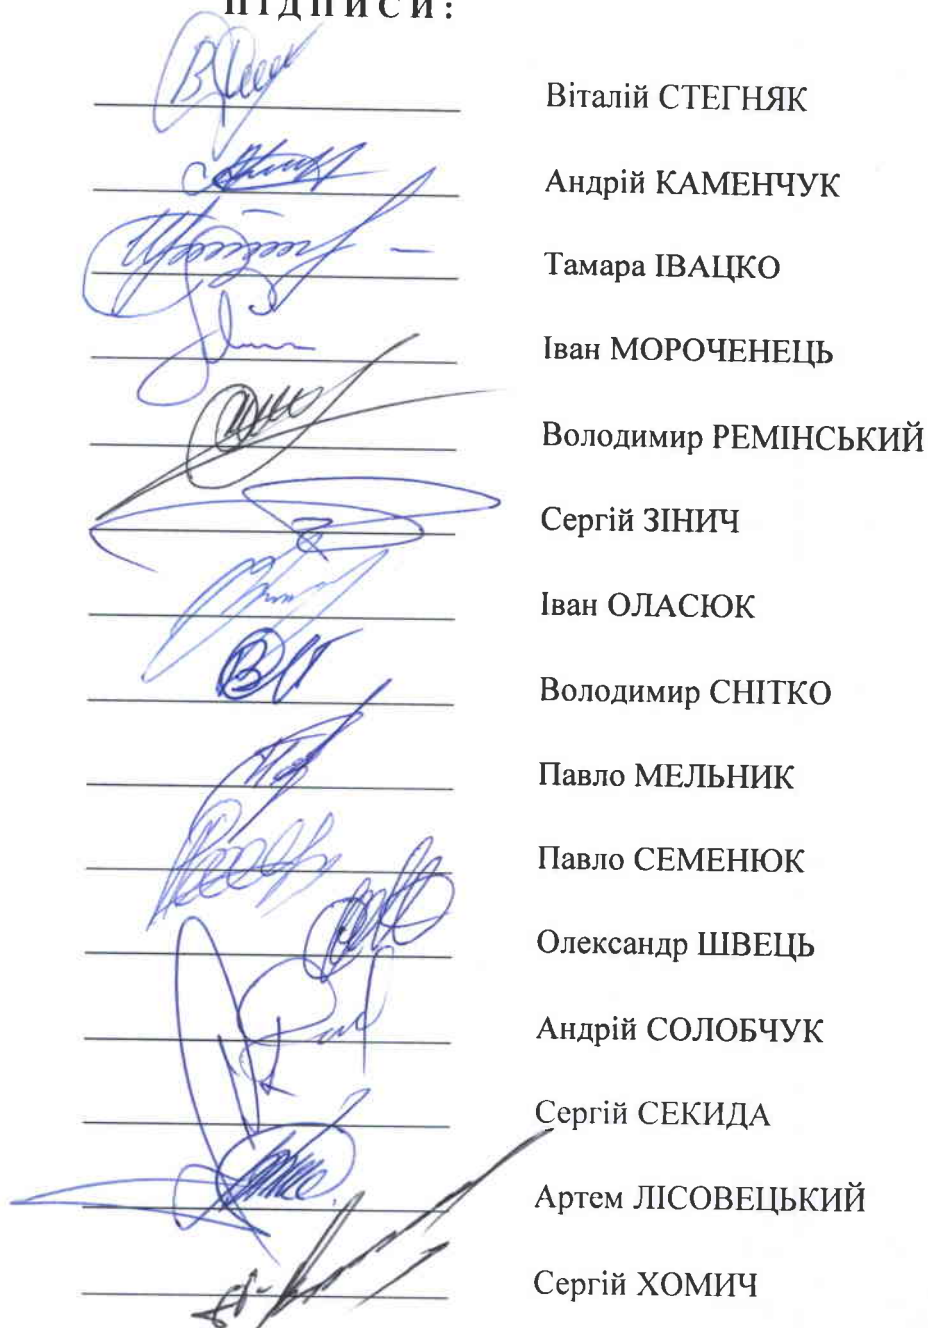 ПІДПИСИ:
Віталій СТЕГНЯК
Андрій КАМЕНЧУК
Тамара ІВАЦКО
Іван МОРОЧЕНЕЦЬ
Володимир РЕМІНСЬКИЙ
Сергій ЗІНИЧ
Іван ОЛАСЮК
Володимир СНІТКО
Павло МЕЛЬНИК
Павло СЕМЕНЮК
Олександр ШВЕЦЬ
Андрій СОЛОБЧУК
Сергій СЕКИДА
Артем ЛІСОВЕЦЬКИЙ
Сергій ХОМИЧ